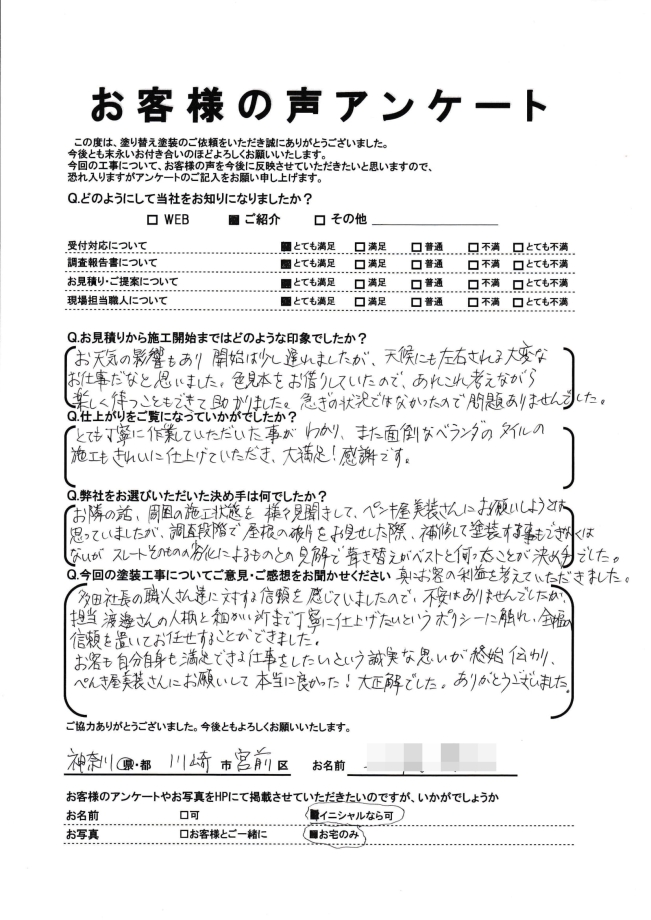 お客様の声アンケート
この度は、塗り替え塗装のご依頼をいただき誠にありがとうございました。
今後とも末永いお付き合いのほどよろしくお願いいたします。
今回の工事について、お客様の声を今後に反映させていただきたいと思いますので、
恐れ入りますがアンケートのご記入をお願い申し上げます。
Q.どのようにして当社をお知りになりましたか？
□ WEB ■ ご紹介 □ その他
受付対応について ■とても満足 □満足 □普通 □不満 □とても不満
調査報告書について ■とても満足 □満足 □普通 □不満 □とても不満
お見積り・ご提案について ■とても満足 □満足 □普通 □不満 □とても不満
現場担当職人について ■とても満足 □満足 □普通 □不満 □とても不満
Q.お見積りから施工開始まではどのような印象でしたか？
お天気の影響もあり 開始は少し遅れましたが、天候にも左右される大変な
お仕事だなと思いました。色見本をお借りしていたので、あれこれ考えながら
楽しく待つこともできて助かりました。急ぎの状況ではなかったので問題ありませんでした。
Q.仕上がりをご覧になっていかがでしたか？
とても丁寧に作業していただいた事が わかり、また面倒なベランダのタイルの
施工もきれいに仕上げていただき、大満足！感謝です。
Q.弊社をお選びいただいた決め手は何でしたか？
お隣の話、周囲の施工状態を 様々見聞きして、ペンキ屋美装さんにお願いしようとは
思っていましたが、調査段階で屋根の破片をお見せした際、補修して塗装する事もできなくは
ないが スレートそのものの劣化によるものとの見解で葺き替えがベストと伺ったことが決め手でした。
Q.今回の塗装工事についてご意見・ご感想をお聞かせください 真にお客の利益を考えていただきました。
多田社長の職人さん達に対する信頼を感じていましたので、不安はありませんでしたが、
担当 渡邉さんの人柄と細かい所まで丁寧に仕上げたいというポリシーに触れ、全幅の
信頼を置いてお任せすることができました。
お客も自分自身も満足できる仕事をしたいという誠実な思いが終始伝わり、
ぺんき屋美装さんにお願いして本当に良かった！大正解でした。ありがとうございました。
ご協力ありがとうございました。今後ともよろしくお願いいたします。
神奈川 県・都 川崎 市 宮前 区 お名前
お客様のアンケートやお写真をHPにて掲載させていただきたいのですが、いかがでしょうか
お名前 □可 ■イニシャルなら可
お写真 □お客様とご一緒に ■お宅のみ